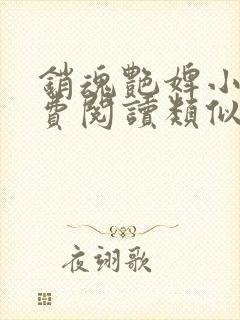 銷魂艷婢小
費閱讀類似
夜翊歌